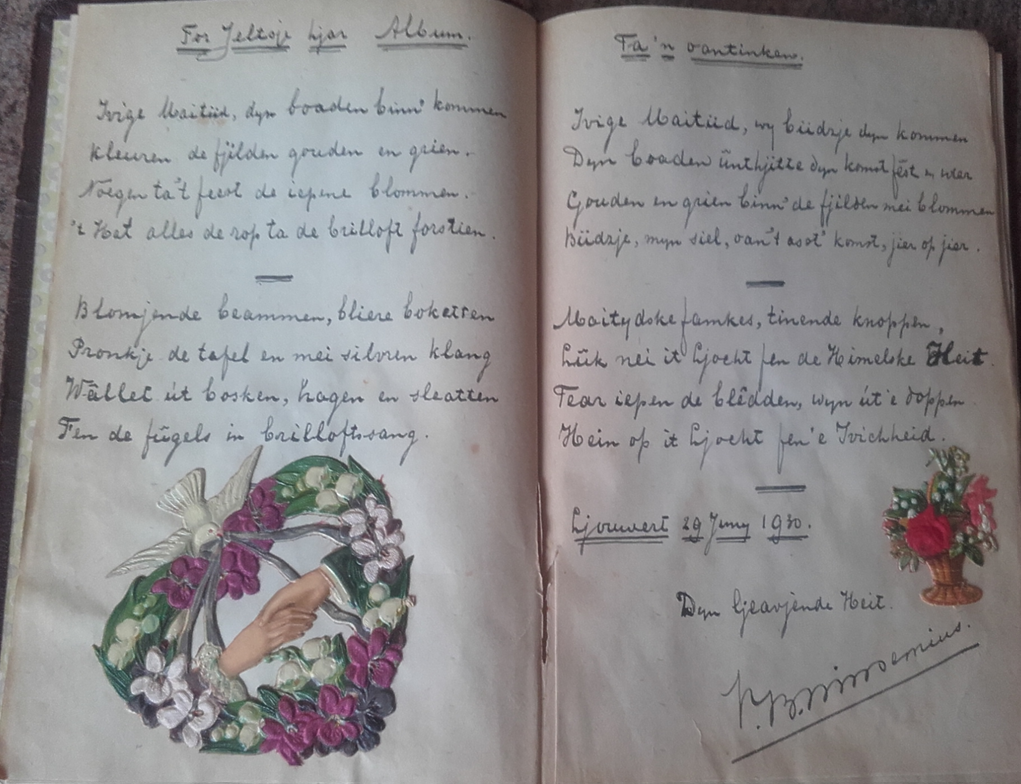 For Jeltsje hjar Album.
Ivige Maitiid, dyn boaden binn' kommen
Kleuren de fjilden gouden en grien.
Noegen ta't feest de iepene blommen.
't Hat alles de rop ta de brilloft forstien.
Blomjende beammen, bliere boketten
Pronkje de tafel en mei silvren klang
Wâllet út bosken, hagen en sleatten
Fen de fûgels in brilloftssang.
Ta 'n oantinken.
Ivige Maitiid, wy biidzje dyn kommen
Dyn boaden ûnthjitte dyn komst fêst en wier
Gouden en grien binn' de fjilden mei blommen
Biidzje, myn siel, oan't asot' komst, jier op jier.
Maitydske famkes, tinende knoppen,
Lûk nei it Ljocht fen de Himelske Heit.
Tear iepen de blêdden, wyn út'e doppen
Hein op it Ljocht fen'e Ivichheid.
Ljouwert 29 Juny 1930.
Dyn ljeavjende Heit.